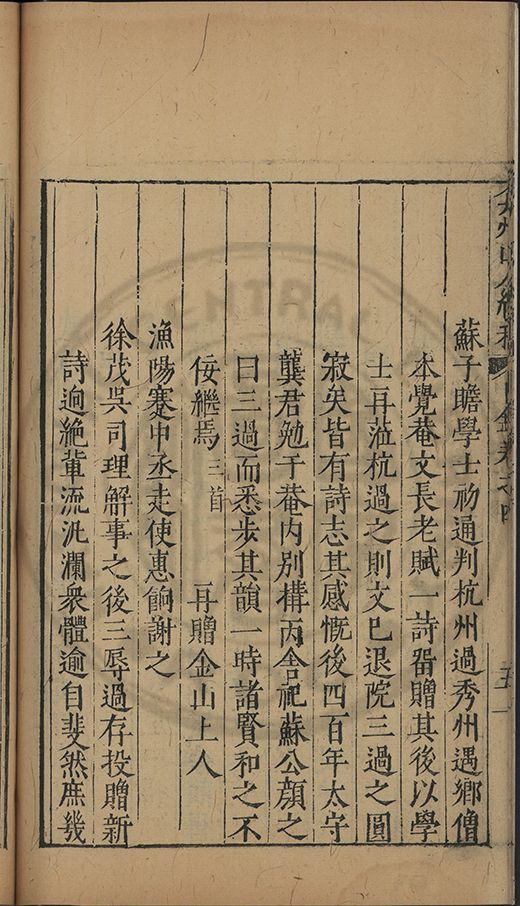 蘇子瞻學士初通判杭州過秀州遇鄉僧
本覺菴文長老賦一詩畱贈其後以學
士再蒞杭過之則文已退院三過之圓
寂矣皆有詩志其感慨後四百年太守
龔君勉于菴內別構丙舍祀蘇公顏之
曰三過而悉步其韻一時諸賢和之不
佞繼焉 三首 再贈金山上人
漁陽蹇中丞走使惠餉謝之
徐茂吳司理解事之後三辱過存投贈新
詩逈絶輩流汎瀾衆體逾自斐然庶幾